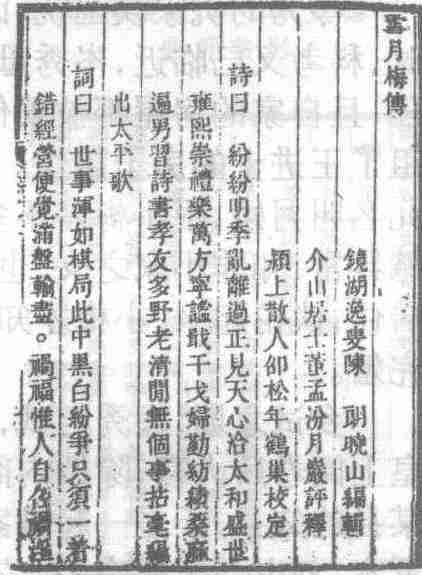 雪月梅傳
鏡湖逸叟陳 朗曉山編輯
介山居士董孟汾月巖評釋
潁上散人邵松年鶴巢校定
詩曰 紛紛明季亂離過正見天心洽太和盛世
雍熙崇禮樂萬方寧謐戢干戈婦勤紡績桑麻
遍男習詩書孝友多野老清閒無個事拈毫編
出太平歌
詞曰 世事渾如棋局此中黑白紛爭只須一着
錯經營便覺滿盤輸盡。禍福惟人自